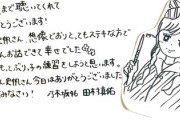 まで聴いてくれて
とうございます!
史帆さん、想像どおりとってもステキな方で
んお話できて幸せでした
もてしぶり子の練習をしようと思います。
史帆さん今日はありがとうございました
みなさい! 乃木坂46 田村真佑